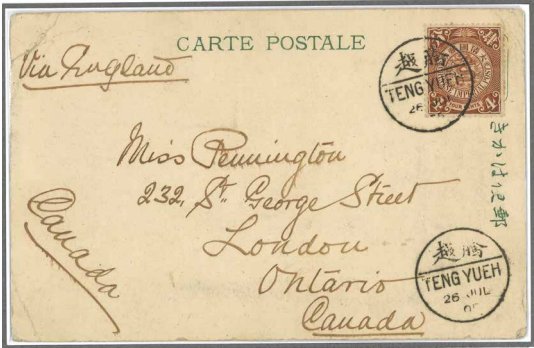 CARTE POSTALE
Via England
越騰
TENG YUEH
26
Miss Pennington
232, St. George Street
London
Ontario
Canada
Canada
きかは便郵
越騰
TENG YUEH
26 JUL